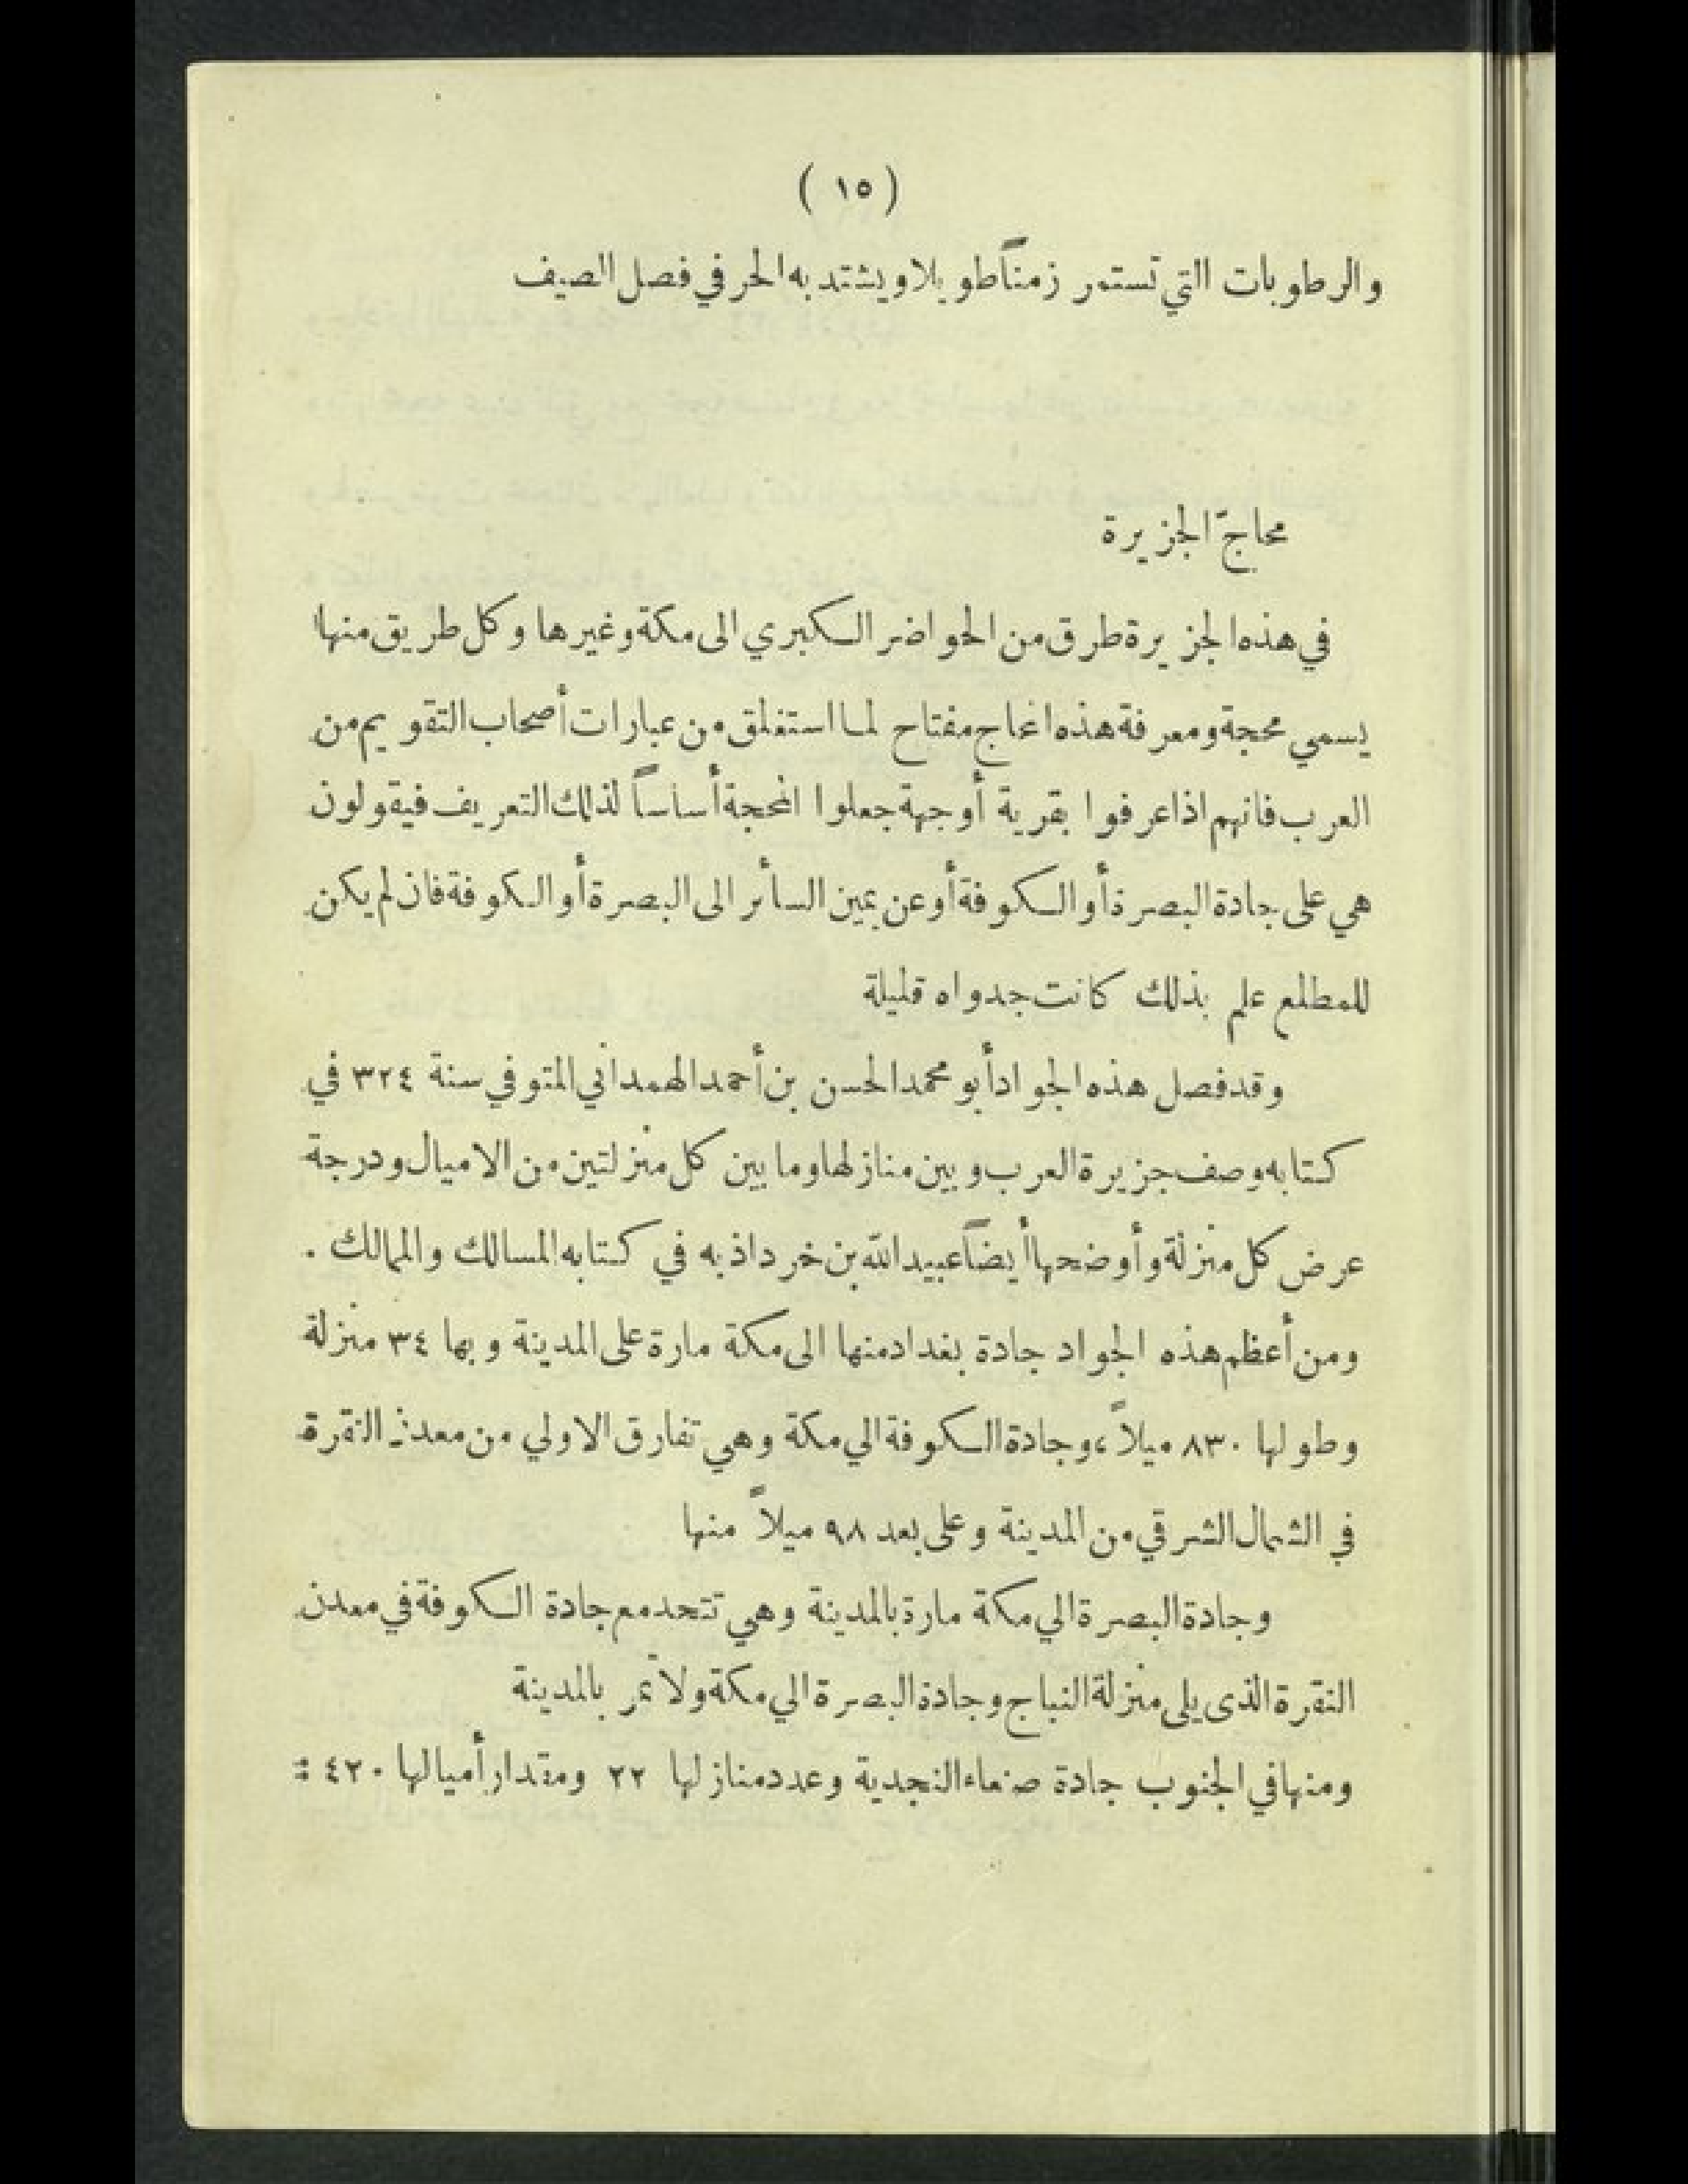 ( ١٥ )
والرطوبات التي تستمر زمناً طويلا ويشتد به الحر في فصل الصيف
محاجّ الجزيرة
في هذه الجزيرة طرق من الحواضر الكبري الى مكة وغيرها وكل طريق منها
يسمي محجة ومعرفة هذه المحاج مفتاح لما استغلق من عبارات أصحاب التقويم من
العرب فانهم اذا عرفوا بقرية أو جهة جعلوا المحجة أساساً لذلك التعريف فيقولون
هي على جادة البصرة أو الكوفة أو عن يمين السائر الى البصرة أو الكوفة فان لم يكن
للمطلع علم بذلك كانت جدواه قليلة
وقد فصل هذه الجواد أبو محمد الحسن بن أحمد الهمداني المتوفي سنة ٣٢٤ في
كتابه وصف جزيرة العرب وبين منازلها وما بين كل منزلتين من الاميال ودرجة
عرض كل منزلة وأوضحها أيضاً عبيد الله بن خرداذبه في كتابه المسالك والممالك .
ومن أعظم هذه الجواد جادة بغداد منها الى مكة مارة على المدينة وبها ٣٤ منزلة
وطولها ٨٣٠ ميلاً، وجادة الكوفة الي مكة وهي تفارق الاولي من معدن النقرة
في الشمال الشرقي من المدينة وعلى بعد ٩٨ ميلاً منها
وجادة البصرة الي مكة مارة بالمدينة وهي تتحد مع جادة الكوفة في معدن
النقرة الذى يلى منزلة النباج وجادة البصرة الي مكة ولا تمر بالمدينة
ومنها في الجنوب جادة صنعاء النجدية وعدد منازلها ٢٢ ومقدار أميالها ٤٢٠ :